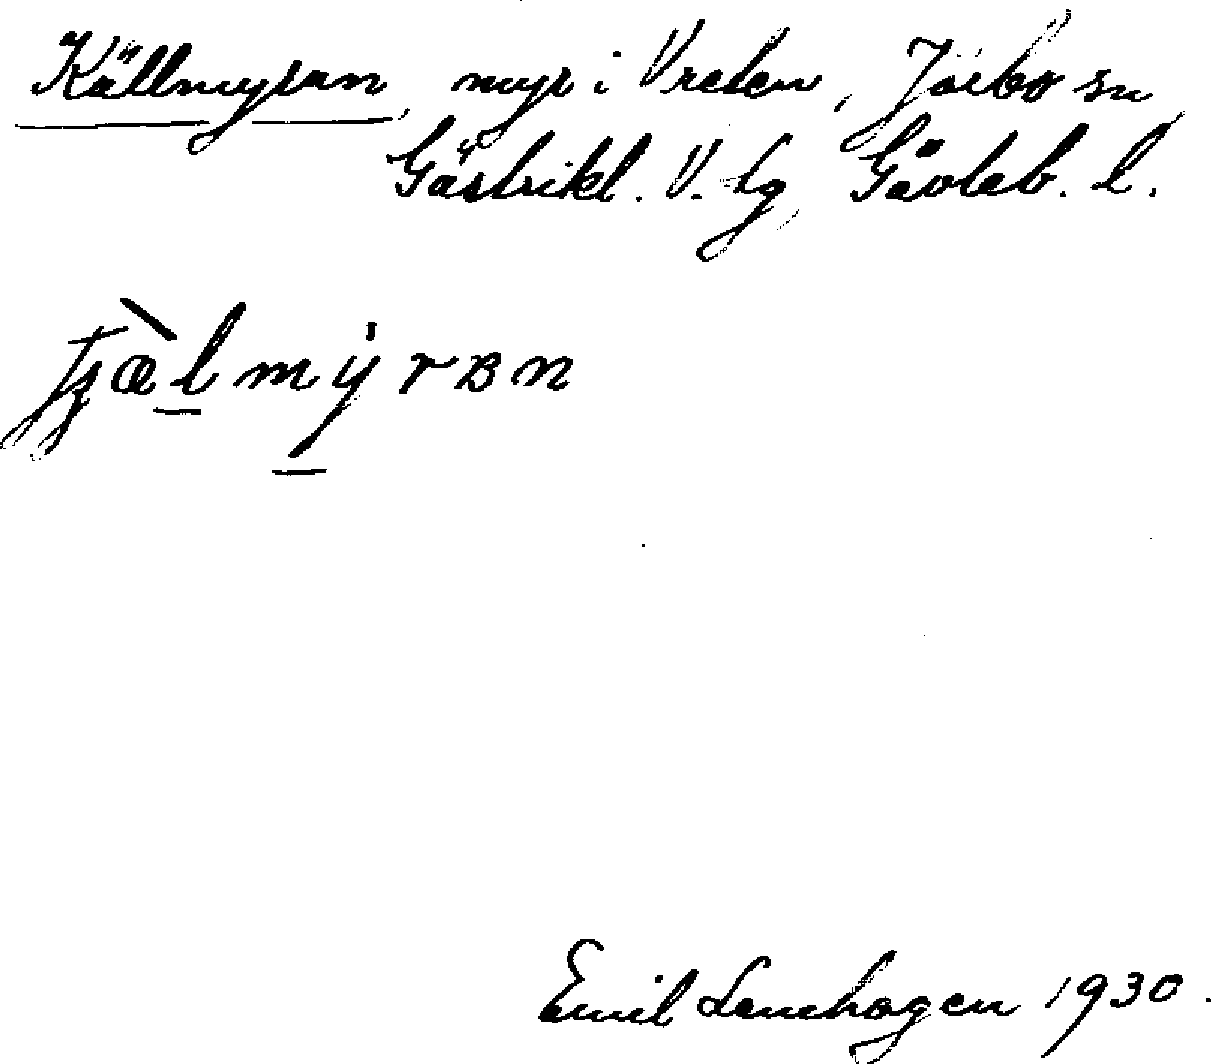 Källmyran, myr i Vreten, Järbo sn,
Gästrikl. V. tg, Gävleb. l.
Emil Lenehagen 1930.